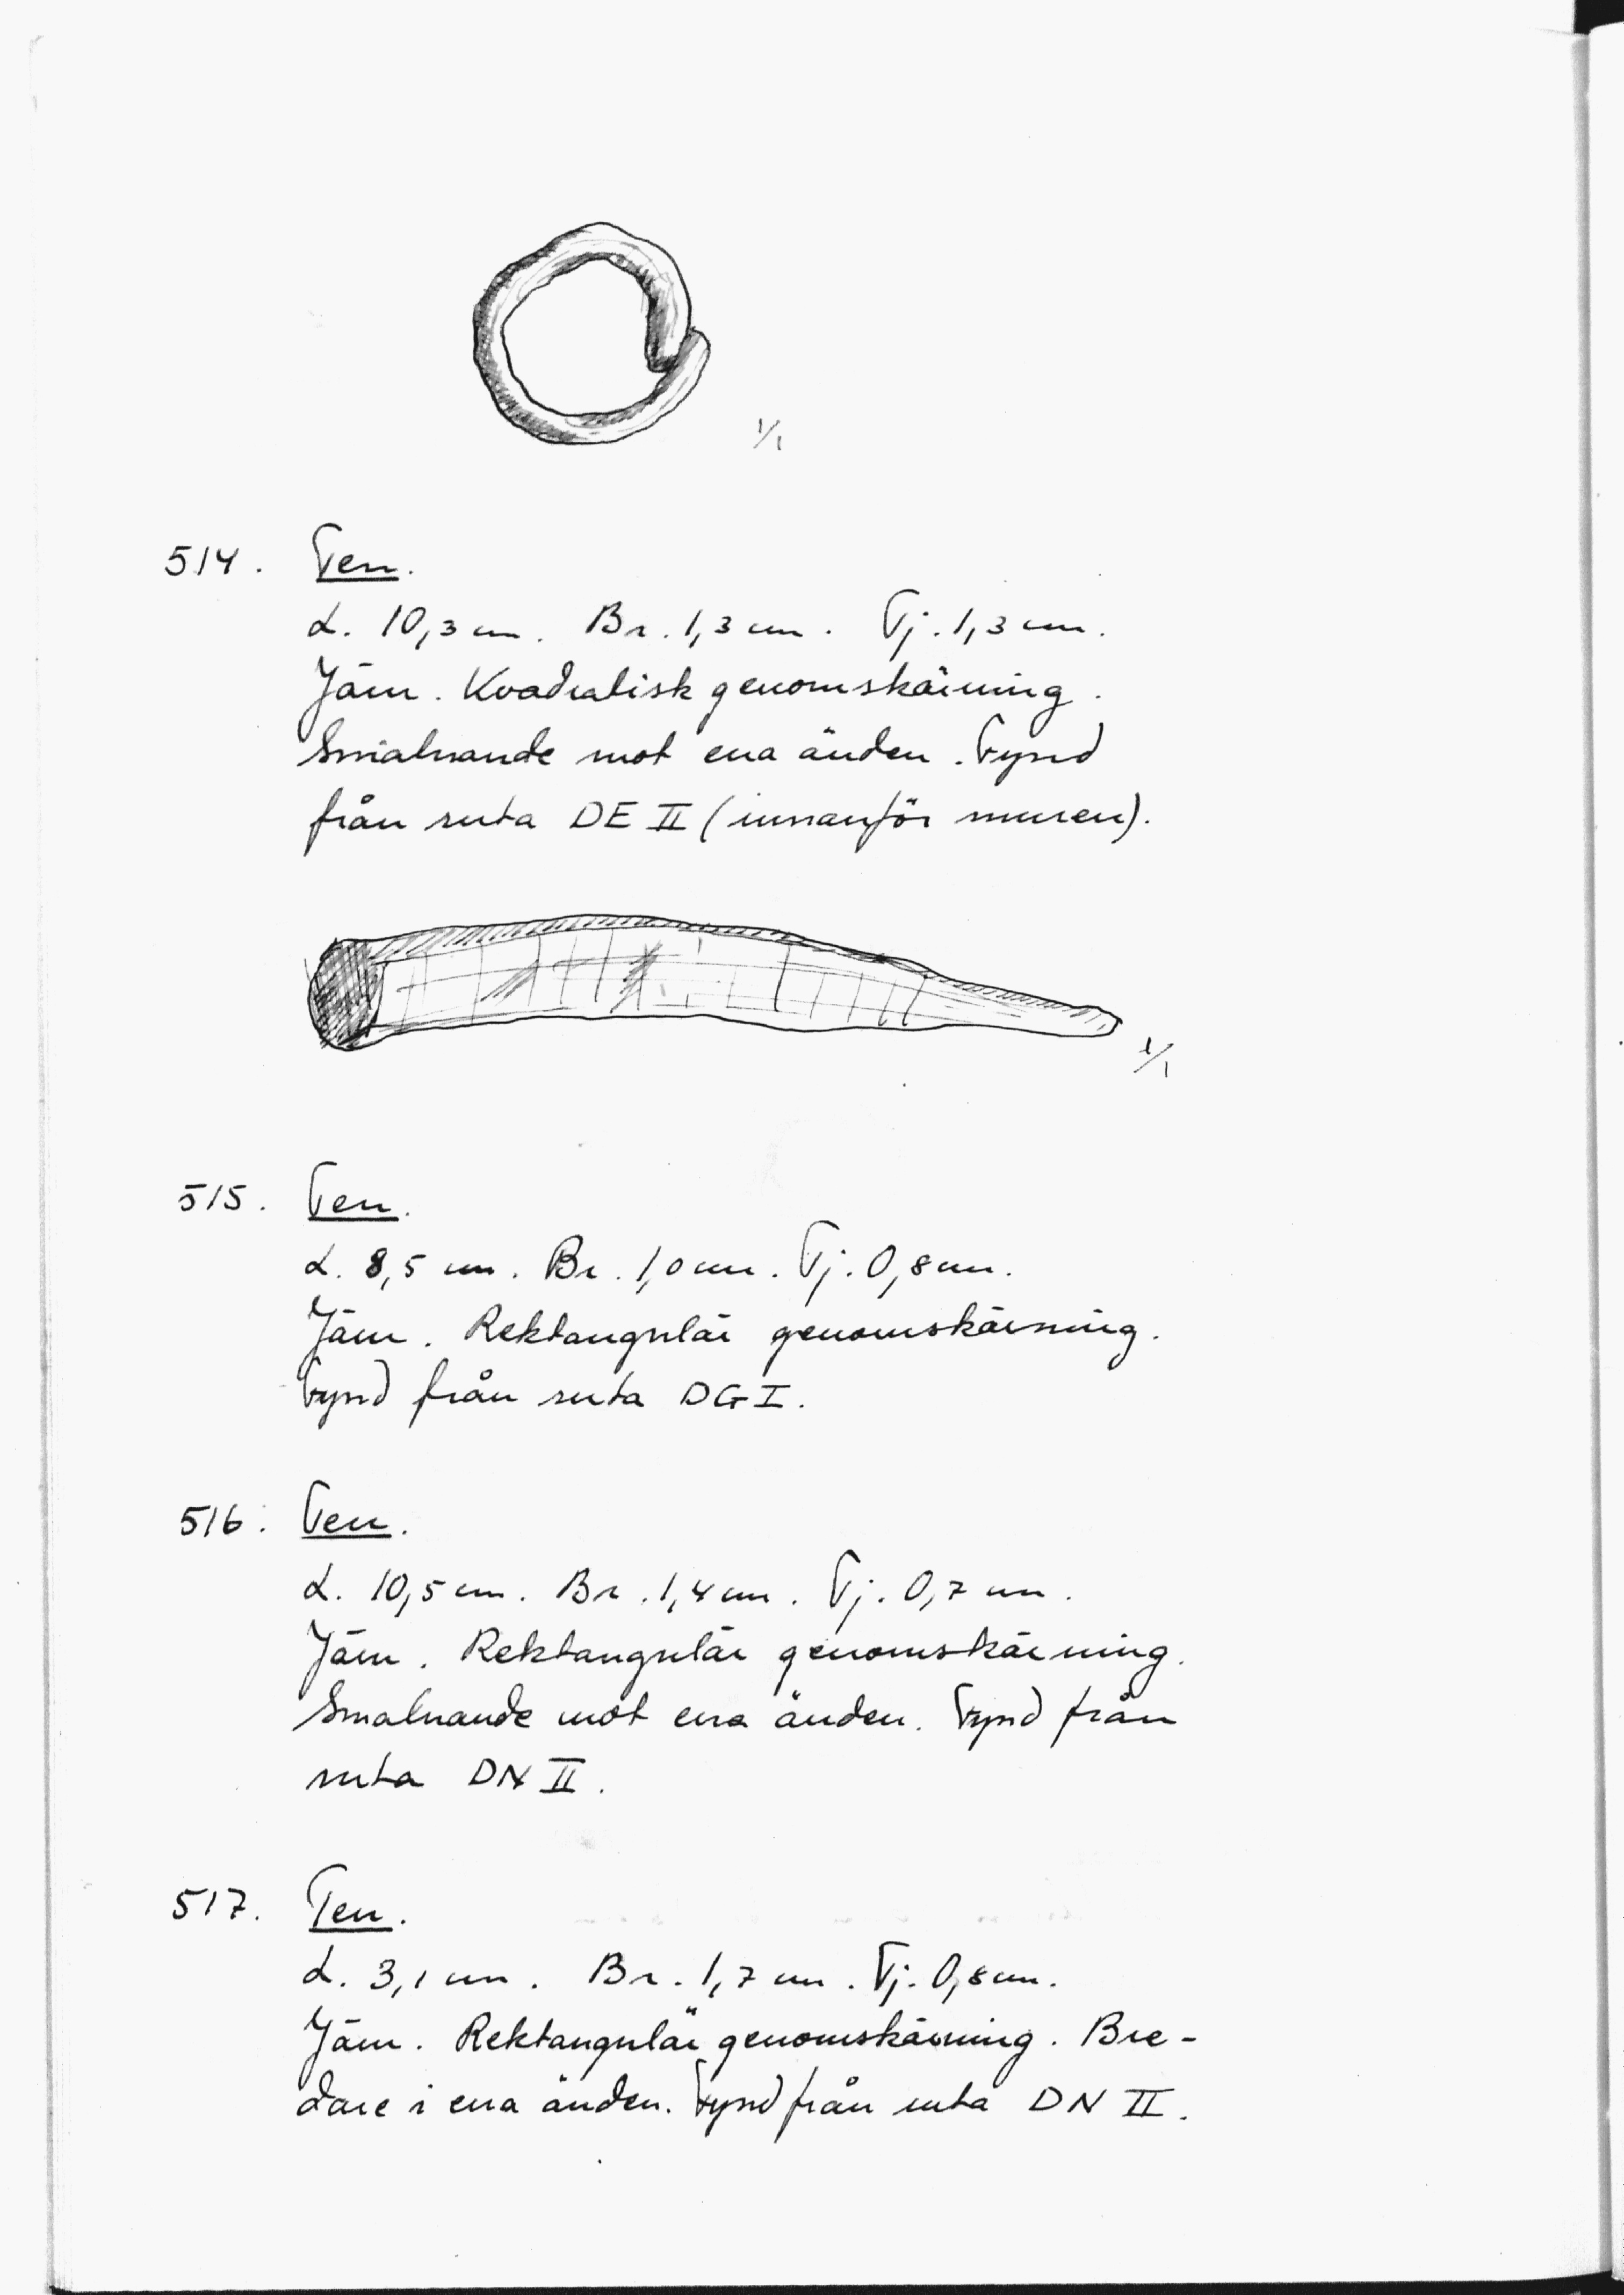 1/1
514. Ten.
L. 10,3 cm. Br. 1,3 cm. Tj. 1,3 cm.
Järn. Kvadratisk genomskärning.
Smalnande mot ena änden. Fynd
från ruta DE II (innanför muren).
1/1
515. Ten.
L. 8,5 cm. Br. 1,0 cm. Tj. 0,8 cm.
Järn. Rektangulär genomskärning.
Fynd från ruta DG I.
516. Ten.
L. 10,5 cm. Br. 1,4 cm. Tj. 0,7 cm.
Järn. Rektangulär genomskärning.
Smalnande mot ena änden. Fynd från
ruta DN II.
517. Ten.
L. 3,1 cm. Br. 1,7 cm. Tj. 0,8 cm.
Järn. Rektangulär genomskärning. Bre-
dare i ena änden. Fynd från ruta DN II.